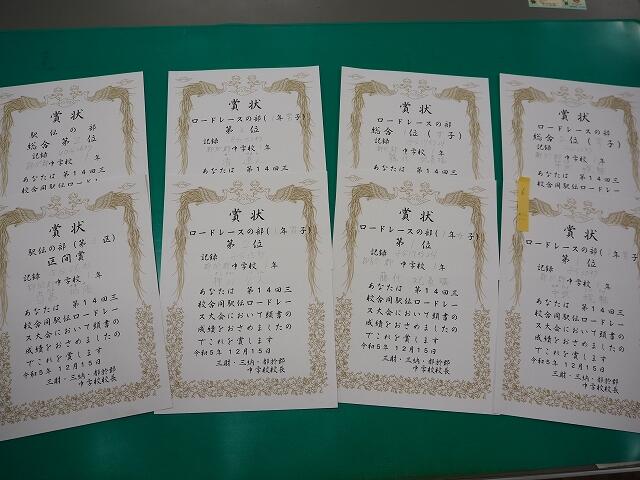 賞状
駅伝の部
総合第 位
記録
中学校 年
あなたは第14回三
校合同駅伝ロードレー
賞状
ロードレースの部( 年 子)
第 位
記録
中学校 年
あなたは第14回三
賞状
ロードレースの部
総合 位( 子)
記録
中学校 年
あなたは第14回三
賞状
ロードレースの部
総合 位( 子)
記録
中学校 年
あなたは第14回三
校合同駅伝ロードレー
賞状
駅伝の部(第 区)
区間賞
記録
中学校 年
あなたは第14回三
校合同駅伝ロードレー
ス大会において頭書の
成績をおさめましたの
でこれを賞します
令和5年12月15日
三財・三納・都於郡
中学校校長
賞状
ロードレースの部( 年 子)
第 位
記録
中学校 年
あなたは第14回三
校合同駅伝ロードレー
ス大会において頭書の
成績をおさめましたの
でこれを賞します
令和5年12月15日
三財・三納・都於郡
中学校校長
賞状
ロードレースの部( 年 子)
第 位
記録
中学校 年
あなたは第14回三
校合同駅伝ロードレー
ス大会において頭書の
成績をおさめましたの
でこれを賞します
令和5年12月15日
三財・三納・都於郡
中学校校長
賞状
ロードレースの部( 年 子)
第 位
記録
中学校 年
あなたは第14回三
校合同駅伝ロードレー
ス大会において頭書の
成績をおさめましたの
でこれを賞します
令和5年12月15日
三財・三納・都於郡
中学校校長